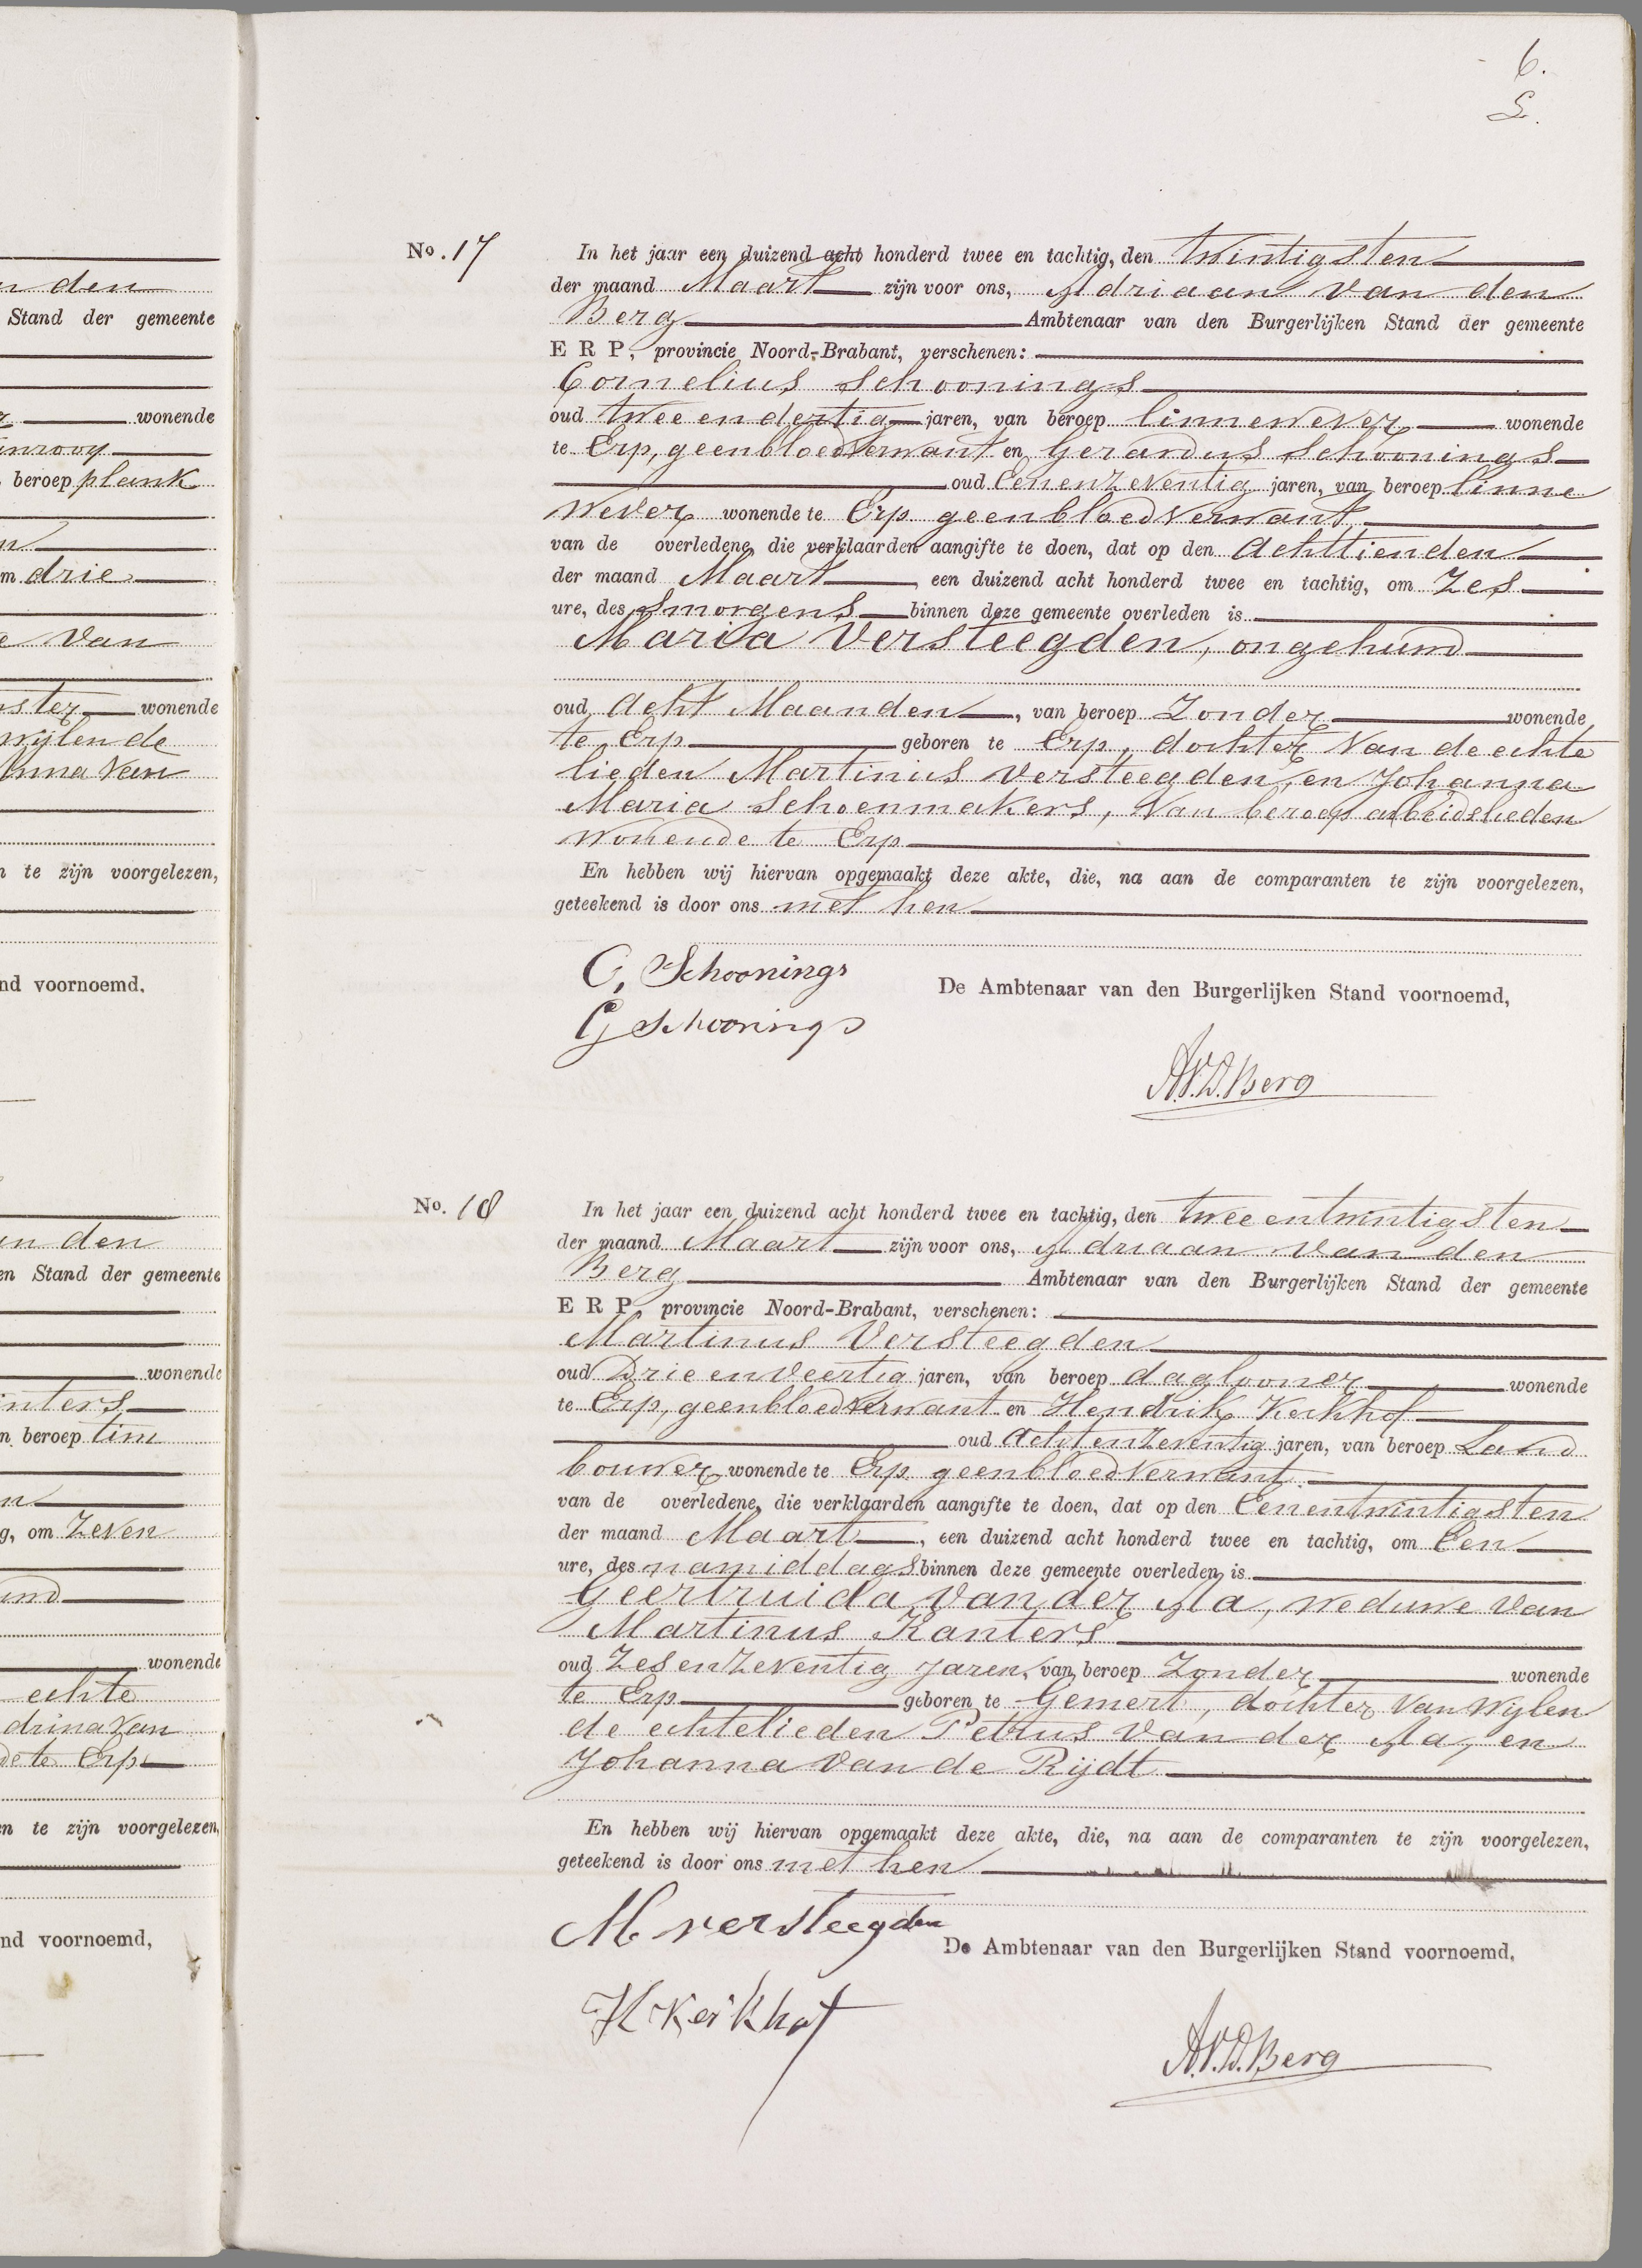 n den
Stand der gemeente
wonende
nrooy
beroep plank
n
m drie
e van
ster wonende
wijlen de
Anna van
n te zijn voorgelezen,
nd voornoemd.
en den
en Stand der gemeente
wonende
nters
n beroep tim
n
g, om Zeven
und
wonende
echte
drina van
de te Erp
en te zijn voorgelezen,
nd voornoemd,
6.
S.
No. 17
In het jaar een duizend acht honderd twee en tachtig, den twintigsten
der maand Maart zijn voor ons, Adriaan van den
Berg Ambtenaar van den Burgerlijken Stand der gemeente
ERP, provincie Noord-Brabant, verschenen:
Cornelius Schoonings
oud twee en dertig jaren, van beroep linnewever wonende
te Erp, geen bloedverwant en Gerardus Schoonings
oud Een en zeventig jaren, van beroep linne
wever wonende te Erp geen bloedverwant,
van de overledene, die verklaarden aangifte te doen, dat op den Achttienden
der maand Maart, een duizend acht honderd twee en tachtig, om Zes
ure, des smorgens binnen deze gemeente overleden is
Maria Versteegden, ongehuwd
oud Acht Maanden, van beroep Zonder wonende
te Erp geboren te Erp, dochter van de echte
lieden Martinus Versteegden, en Johanna
Maria Schoenmakers, van beroep arbeidslieden
wonende te Erp
En hebben wij hiervan opgemaakt deze akte, die, na aan de comparanten te zijn voorgelezen,
geteekend is door ons met hen
C, Schoonings
De Ambtenaar van den Burgerlijken Stand voornoemd,
G Schoonings
A.V.D. Berg
No. 18
In het jaar een duizend acht honderd twee en tachtig, den twee en twintigsten
der maand Maart zijn voor ons, Adriaan van den
Berg Ambtenaar van den Burgerlijken Stand der gemeente
ERP, provincie Noord-Brabant, verschenen:
Martinus Versteegden
oud Drie en veertig jaren, van beroep daglooner wonende
te Erp, geen bloedverwant en Hendrik Kerkhof
oud Acht en zeventig jaren, van beroep Land
bouwer wonende te Erp geen bloedverwant
van de overledene, die verklaarden aangifte te doen, dat op den Een en twintigsten
der maand Maart, een duizend acht honderd twee en tachtig, om Een
ure, des namiddags binnen deze gemeente overleden is
Geertruida van der Aa, weduwe van
Martinus Kanters
oud Zes en zeventig jaren, van beroep Zonder wonende
te Erp geboren te Gemert, dochter van wijlen
de echtelieden Petrus van der Aa, en
Johanna van de Rijdt
En hebben wij hiervan opgemaakt deze akte, die, na aan de comparanten te zijn voorgelezen,
geteekend is door ons met hen
M versteegden
De Ambtenaar van den Burgerlijken Stand voornoemd,
H Kerkhof
A.V.D. Berg